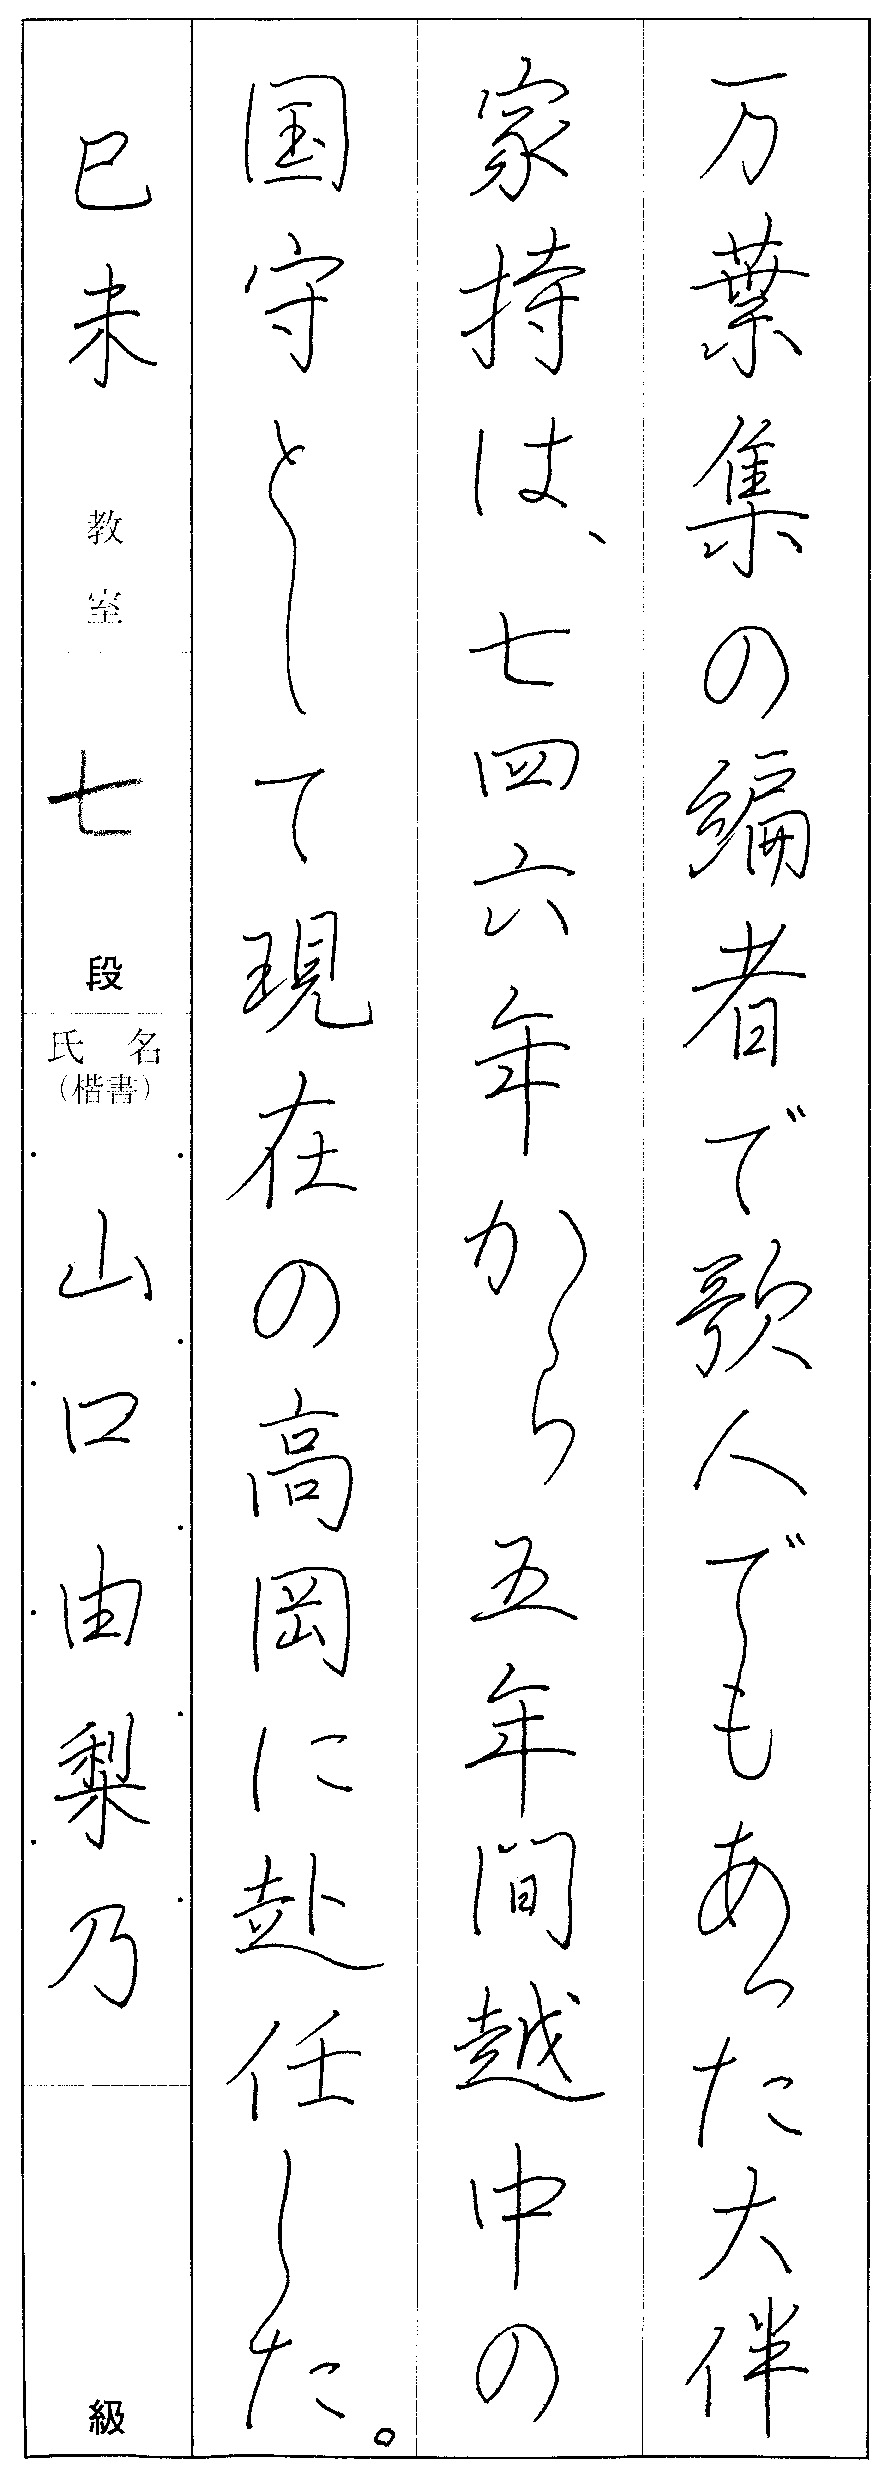 万葉集の編者で歌人でもあった大伴
家持は、七四六年から五年間越中の
国守として現在の高岡に赴任した。
巳未 教室 七 段 氏名 (楷書) 山口由梨乃 級